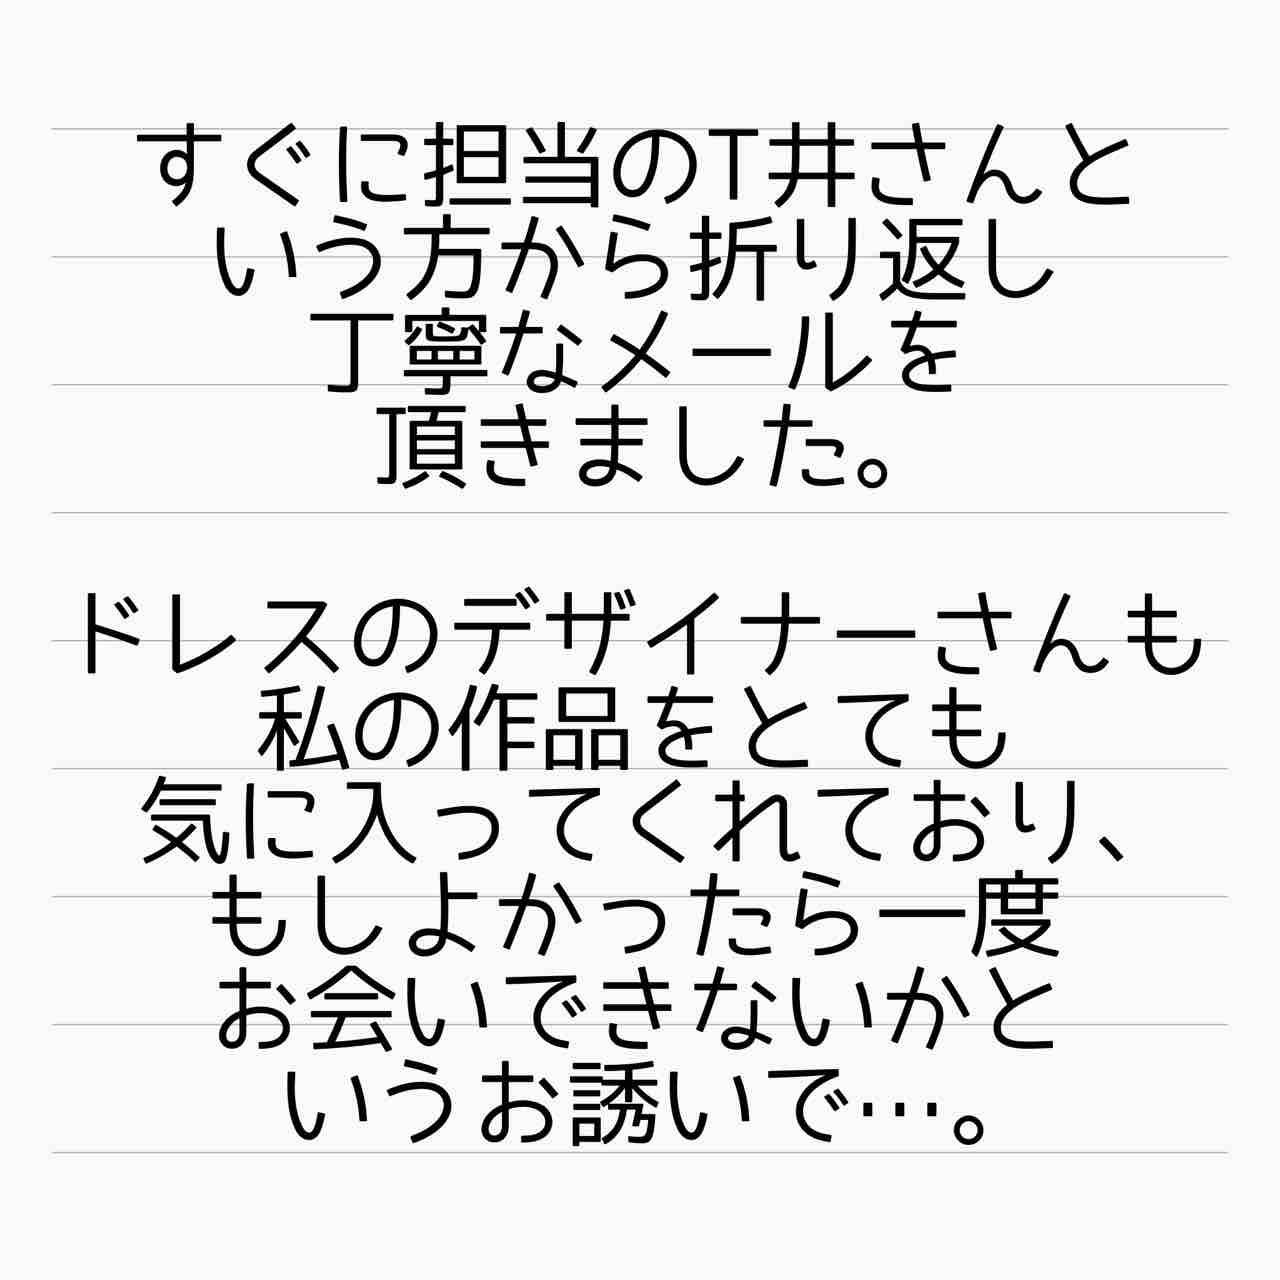 すぐに担当のT井さんと
いう方から折り返し
丁寧なメールを
頂きました。
ドレスのデザイナーさんも
私の作品をとても
気に入ってくれており、
もしよかったら一度
お会いできないかと
いうお誘いで…。